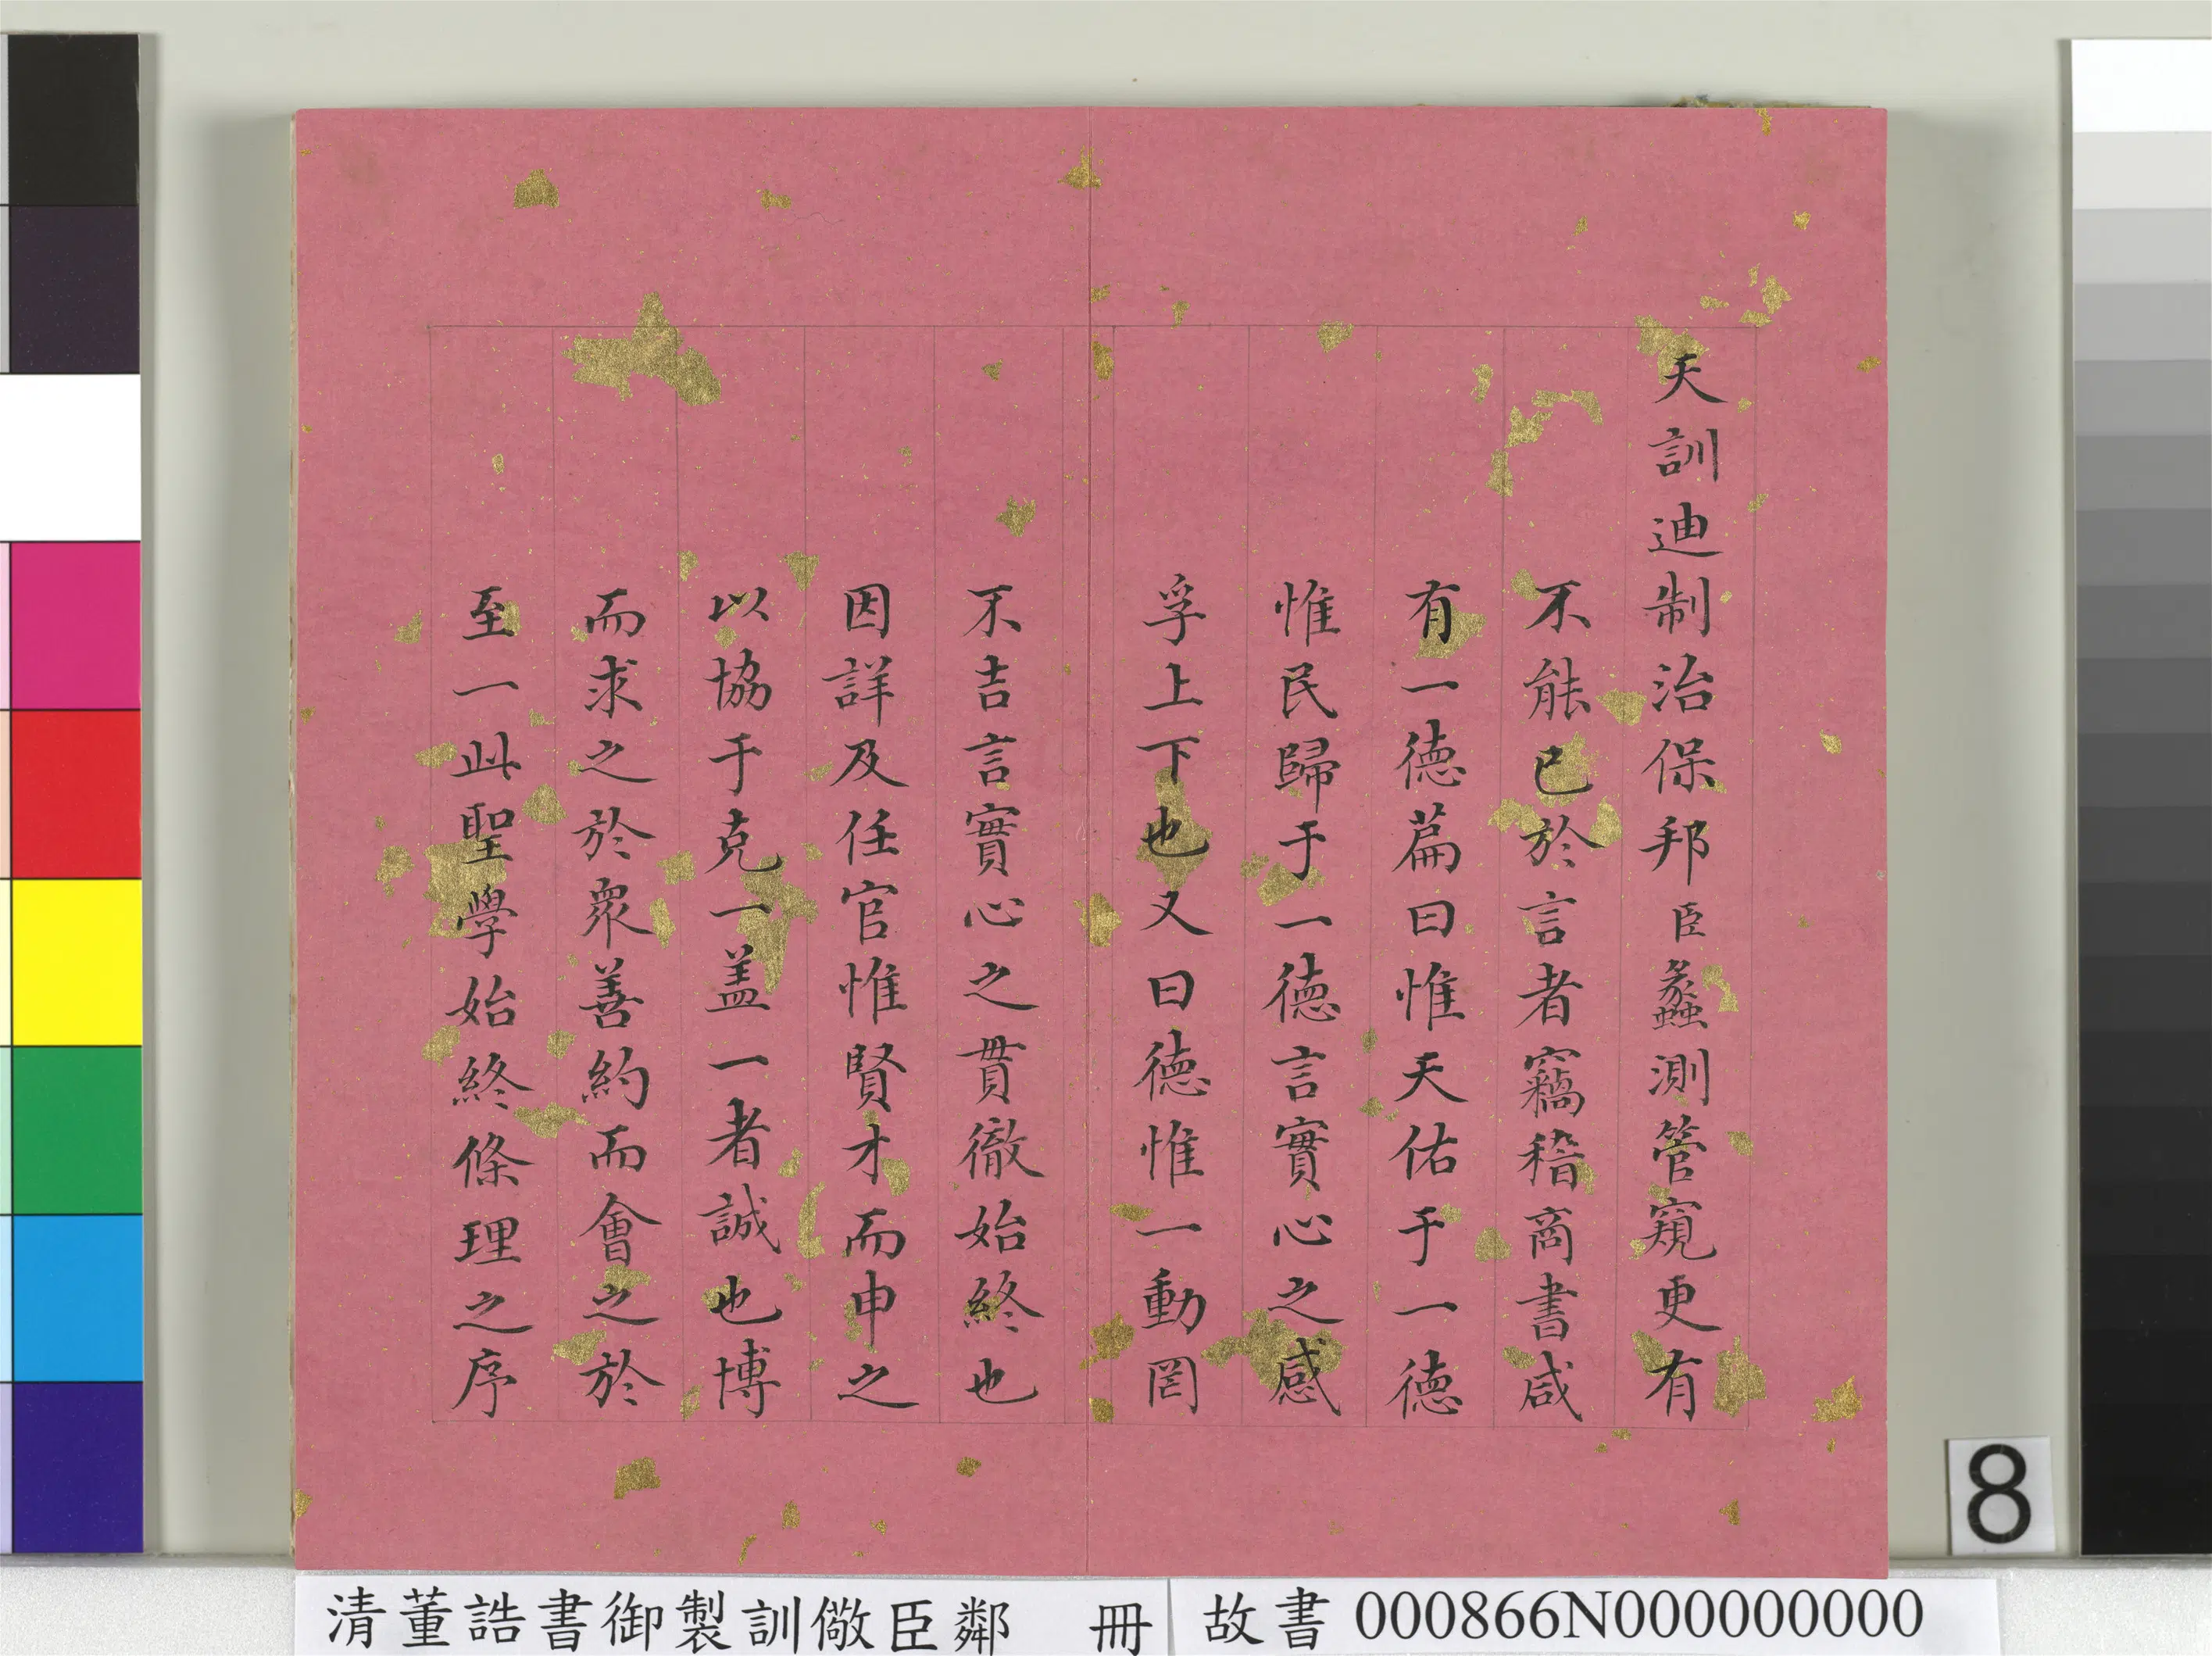 天訓迪制治保邦臣蠡測管窺更有
不能已於言者竊稽商書咸
有一德篇曰惟天佑于一德
惟民歸于一德言實心之感
孚上下也又曰德惟一動罔
不吉言實心之貫徹始終也
因詳及任官惟賢才而申之
以協于克一盖一者誠也博
而求之於衆善約而會之於
至一此聖學始終條理之序
8
清董誥書御製訓儆臣鄰 冊
故書 000866N000000000